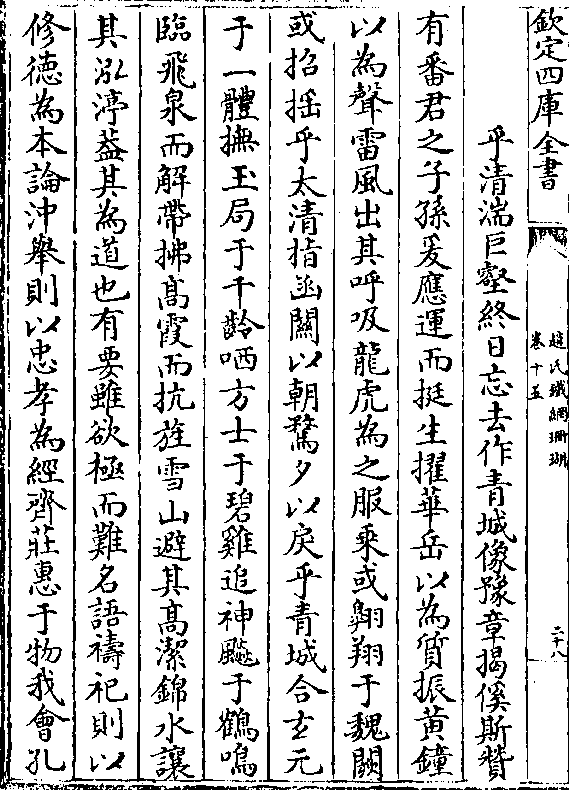 欽定四庫全書
趙氏鐵網珊瑚
卷十五
二十八
乎清湍巨壑終日忘去作青城像豫章揭傒斯贊
有番君之子孫爰應運而挺生擢華岳以為質振黃鐘
以為聲雷風出其呼吸龍虎為之服乘或翱翔于魏闕
或招搖乎太清指函關以朝騖夕以戾乎青城合玄元
于一體撫玉局于千齡哂方士于碧雞追神飈于鶴鳴
臨飛泉而解帶拂高霞而抗旌雪山避其高潔錦水讓
其泓渟葢其為道也有要雖欲極而難名語禱祀則以
修德為本論沖舉則以忠孝為經齊莊惠于物我會孔